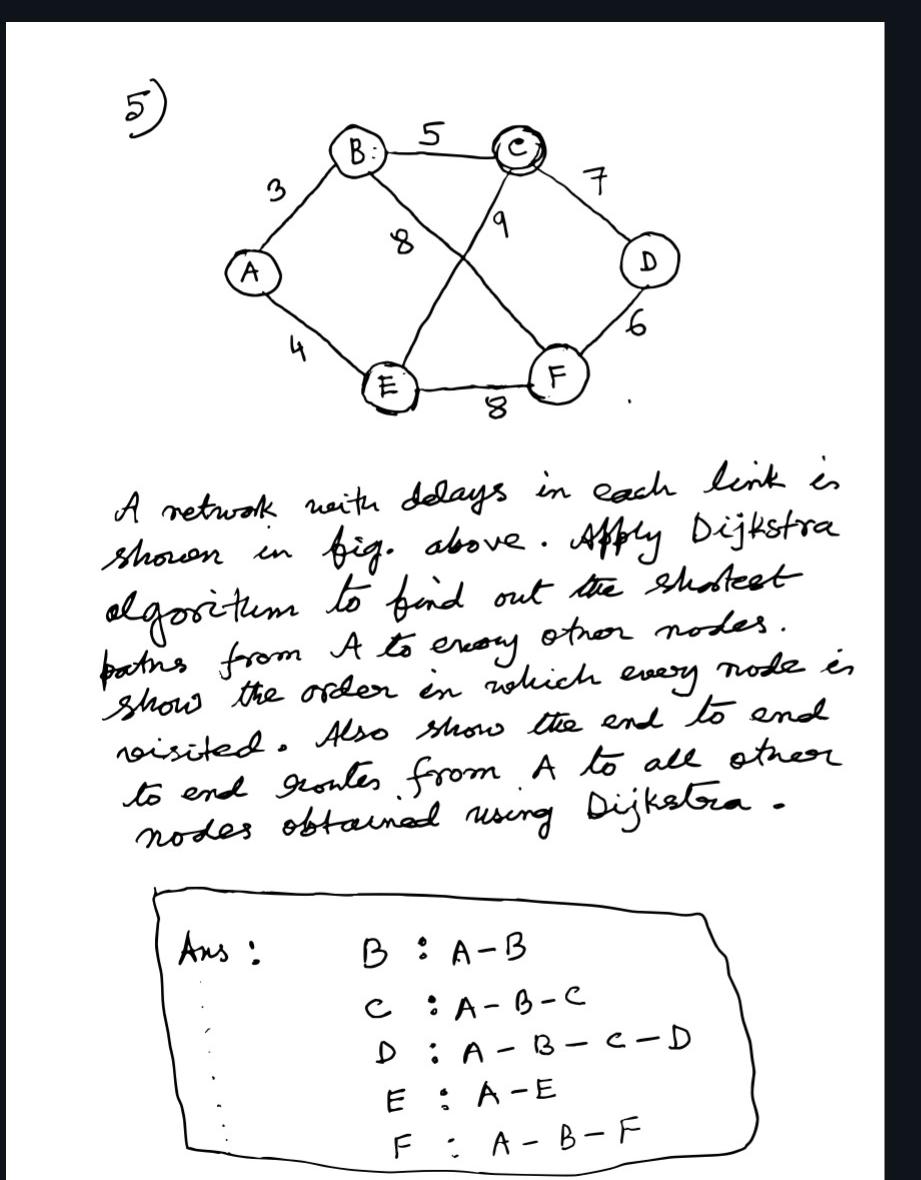 5)
B: 5 C
3 7
8 9
A D
4 6
E F
8
A network with delays in each link is
shown in fig. above. Apply Dijkstra
algorithm to find out the shortest
paths from A to every other nodes.
show the order in which every node is
visited. Also show the end to end
to end routes from A to all other
nodes obtained using Dijkstra.
Ans : B : A-B
C : A-B-C
D : A-B-C-D
E : A-E
F : A-B-F